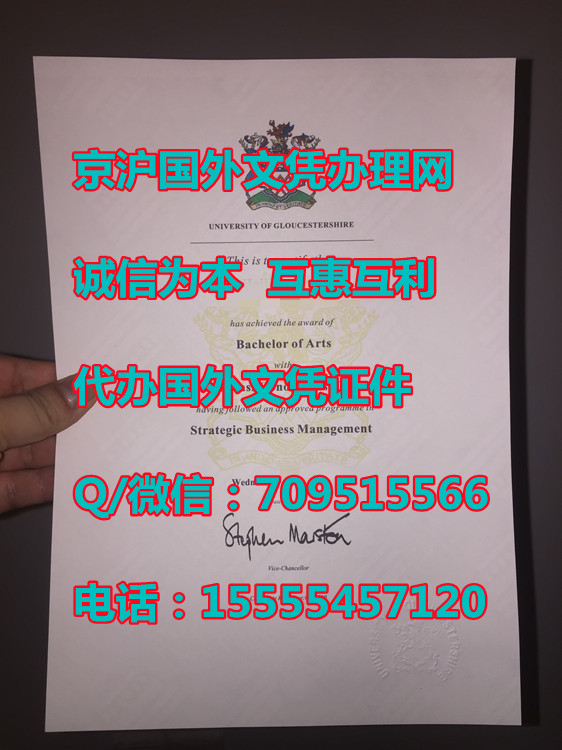 京沪国外文凭办理网
UNIVERSITY OF GLOUCESTERSHIRE
This is
诚信为本 互惠互利
has achieved the award of
Bachelor of Arts
with
代办国外文凭证件
having followed an approved programme in
Strategic Business Management
Q/微信：709515566
Stephen Marston
Vice-Chancellor
电话：15555457120